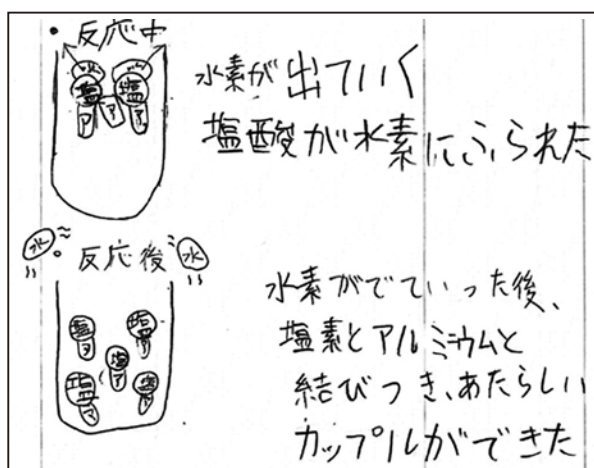 ・反応中
水 水
塩 塩
ア ア ア
水素が出ていく
塩酸が水素にふられた
水 ・反応後 水
塩 塩
ア
塩
ア
塩 塩
ア
水素がでていった後、
塩素とアルミニウムと
結びつき、あたらしい
カップルができた